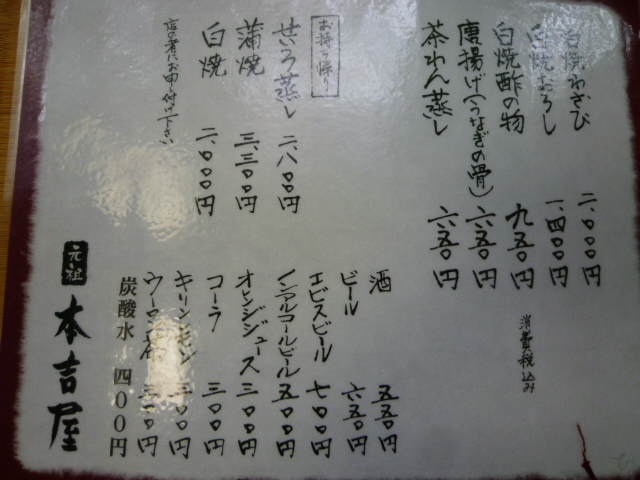 白焼わさび 二、〇〇〇円
白焼おろし 一、四〇〇円
白焼酢の物 九五〇円
唐揚げ(うなぎの骨) 六五〇円
茶わん蒸し 六五〇円
消費税込み
お持ち帰り
せいろ蒸し 二、八〇〇円
蒲焼 三、三〇〇円
白焼 二、〇〇〇円
店の者にお申し付け下さい
酒 五五〇円
ビール 六五〇円
エビスビール 七〇〇円
ノンアルコールビール 五〇〇円
オレンジジュース 三〇〇円
コーラ 三〇〇円
キリンレモン 三〇〇円
ウーロン茶 三〇〇円
炭酸水 四〇〇円
元祖
本吉屋